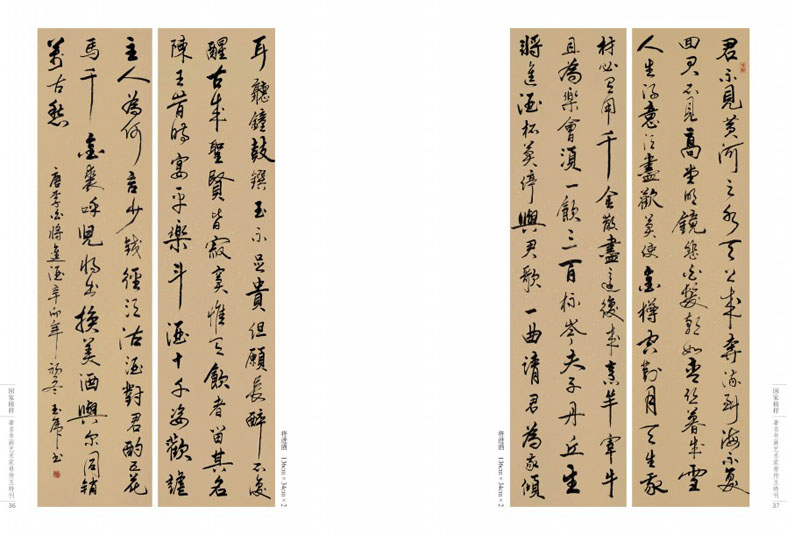 君不見黃河之水天上來奔流到海不復
回君不見高堂明鏡悲白髮朝如青絲暮成雪
人生得意須盡歡莫使金樽空對月天生我
材必有用千金散盡還復來烹羊宰牛
且為樂會須一飲三百杯岑夫子丹丘生
將進酒杯莫停與君歌一曲請君為我傾
耳聽鐘鼓饌玉不足貴但願長醉不復
醒古來聖賢皆寂寞惟有飲者留其名
陳王昔時宴平樂斗酒十千恣歡謔
主人為何言少錢徑須沽酒對君酌五花
馬千金裘呼兒將出換美酒與爾同銷
萬古愁
唐李白將進酒辛卯年初冬玉
将进酒 136cm×34cm×2
将进酒 136cm×34cm×2
国家榜样
著名书画艺术家 特刊
37
国家榜样
著名书画艺术家 特刊
36